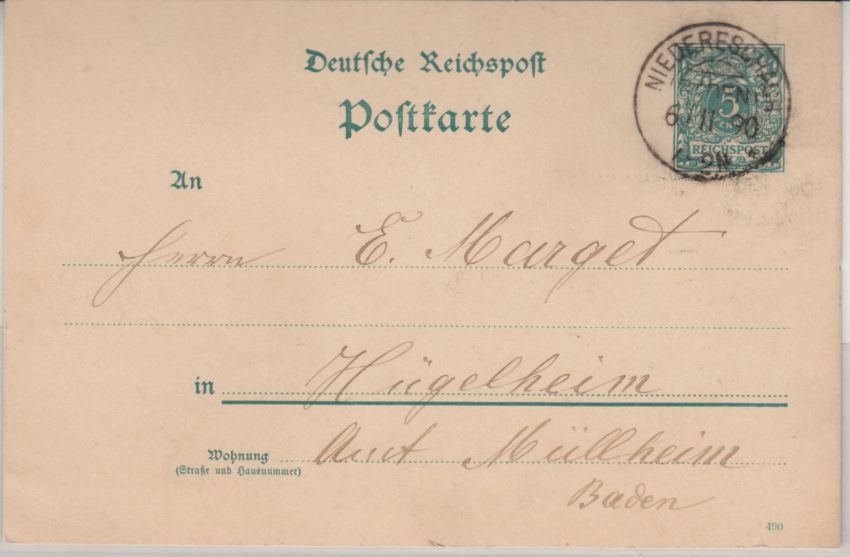 Deutsche Reichspost
Postkarte
NIEDERESCHACH
5
6 11 90
1-2N
REICHSPOST
An
Herrn E. Marget
in Hügelheim
Wohnung Amt Müllheim
(Straße und Hausnummer)
Baden
490